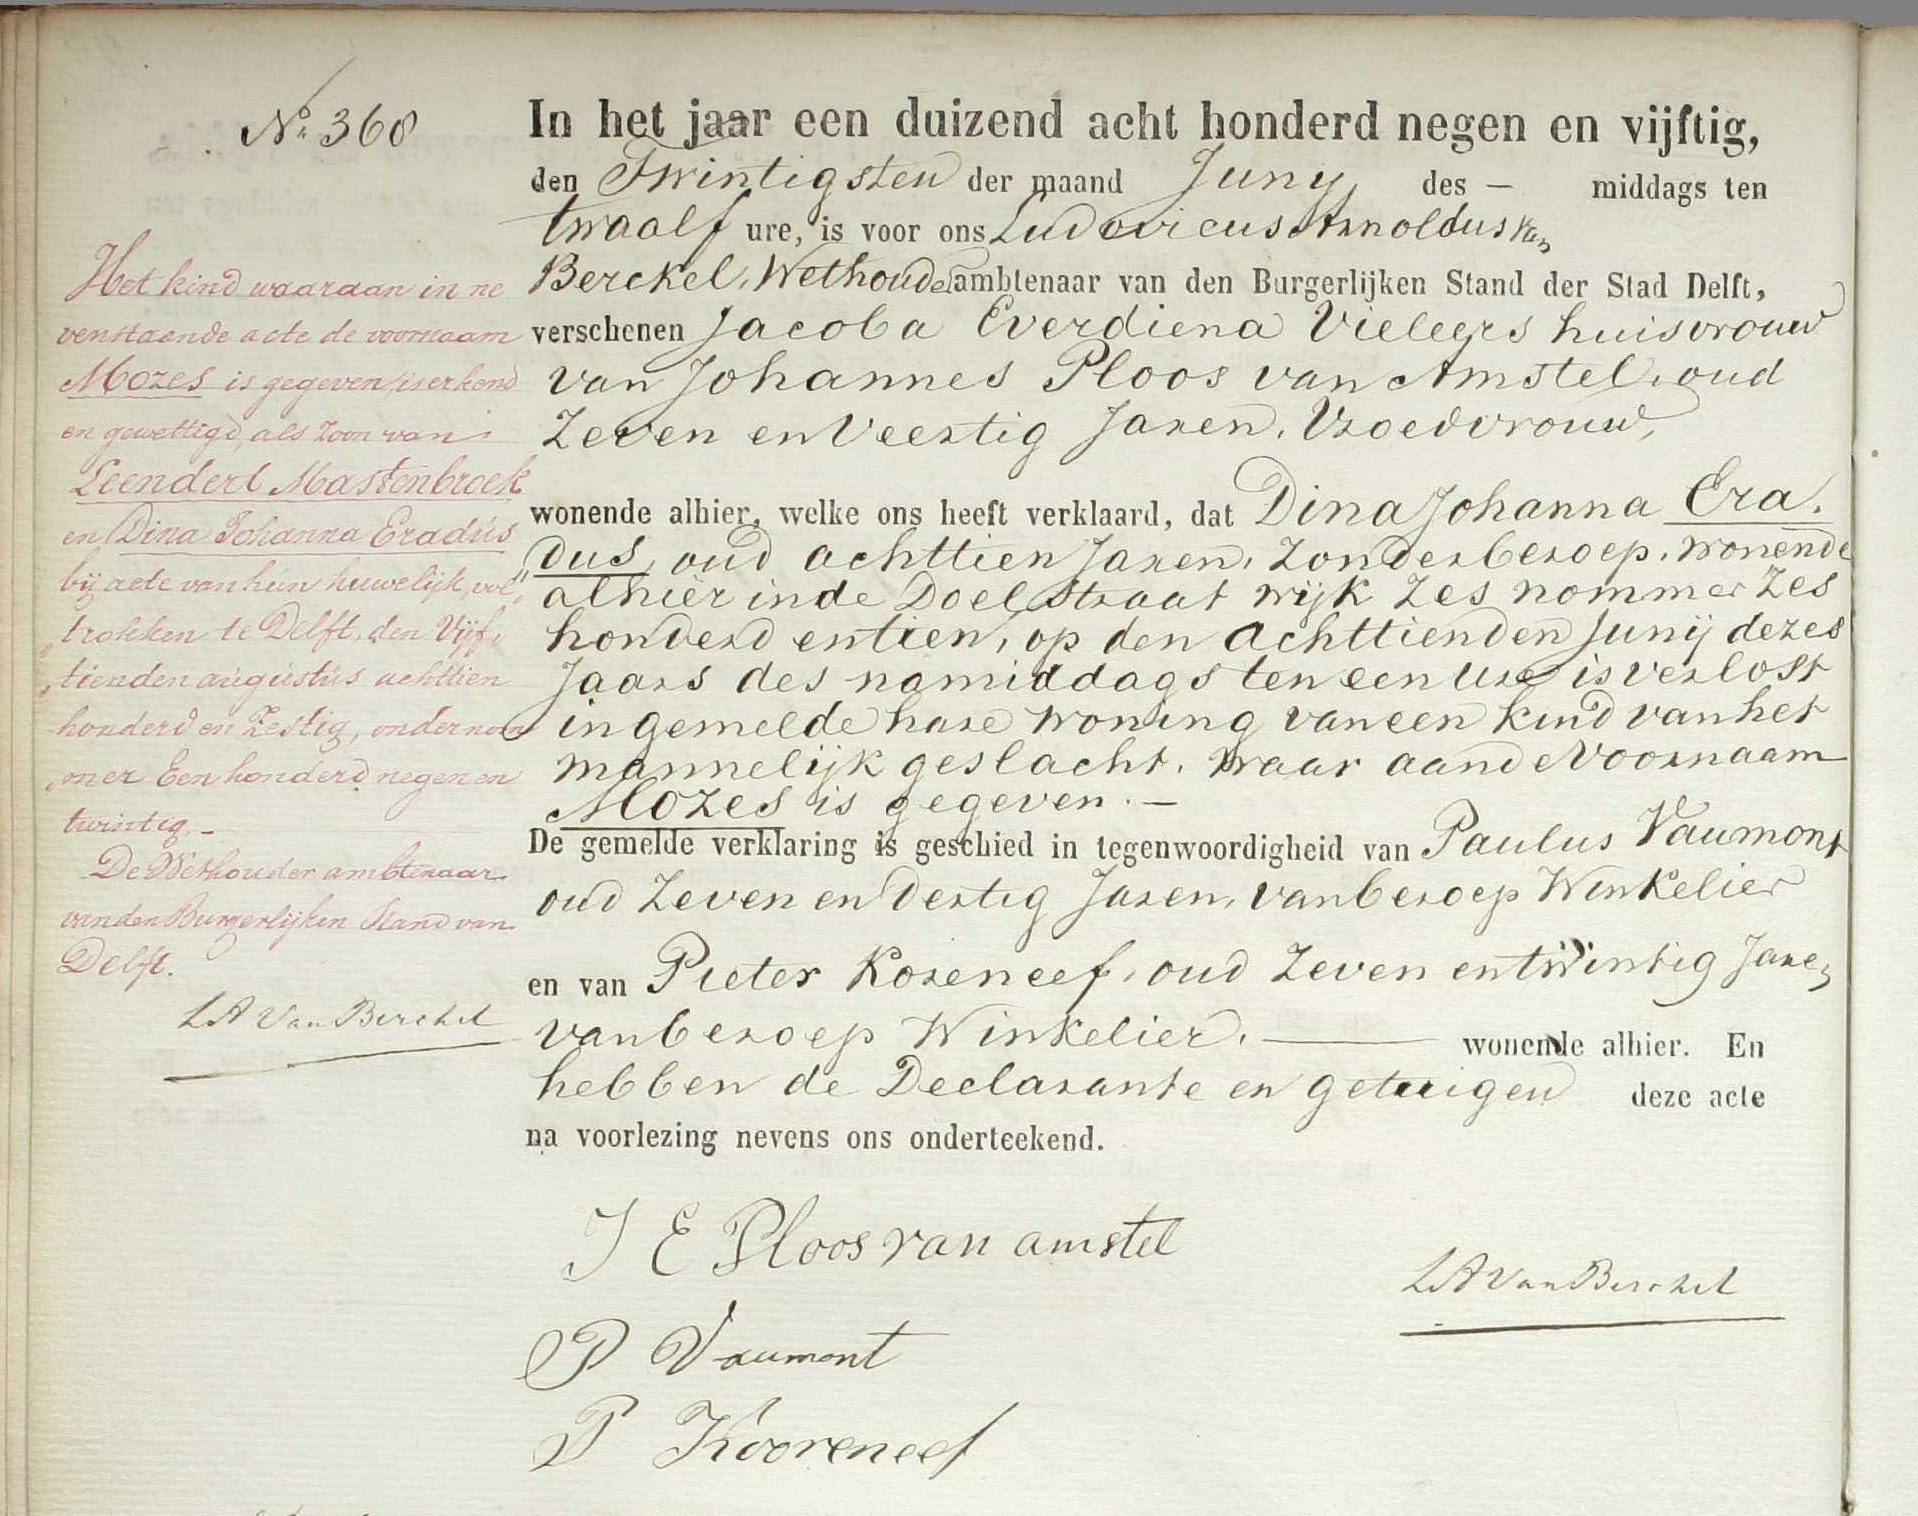 No. 368
In het jaar een duizend acht honderd negen en vijftig,
den Twintigsten der maand Juny des — middags ten
twaalf ure, is voor ons Ludovicus Arnoldus van
Berckel, Wethouder ambtenaar van den Burgerlijken Stand der Stad Delft,
verschenen Jacoba Everdiena Vielegrs huisvrouw
van Johannes Ploos van Amstel, oud
Zeven en Veertig Jaren, Vroedvrouw,
wonende alhier, welke ons heeft verklaard, dat Dina Johanna Era-
dus, oud achttien Jaren, Zonder beroep, wonende
alhier in de Doelstraat wijk Zes nommer Zes
honderd en tien, op den achttienden Junij dezes
Jaars des namiddags ten een ure is verlost
in gemelde hare woning van een kind van het
mannelijk geslacht, waar aan de Voornaam
Mozes is gegeven. —
De gemelde verklaring is geschied in tegenwoordigheid van Paulus Vaumont
oud Zeven en Dertig Jaren, van beroep Winkelier
en van Pieter Koreneef, oud Zeven en twintig Jaren
van beroep Winkelier. — wonende alhier. En
hebben de Declarante en getuigen deze acte
na voorlezing nevens ons onderteekend.
J E Ploos van amstel
L A Van Berckel
P Vaumont
P Kooreneef
Het kind waaraan in ne
venstaande acte de voornaam
Mozes is gegeven, is erkend
en gewettigd, als Zoon van
Leendert Mastenbroek
en Dina Johanna Eradus
bij acte van hun huwelijk, vol„
„trokken te Delft, den Vijf„
„tienden augustus achttien
honderd en Zestig, onder nom
„mer Een honderd negen en
twintig. —
De Wethouder ambtenaar
van den Burgerlijken Stand van
Delft.
L A Van Berckel